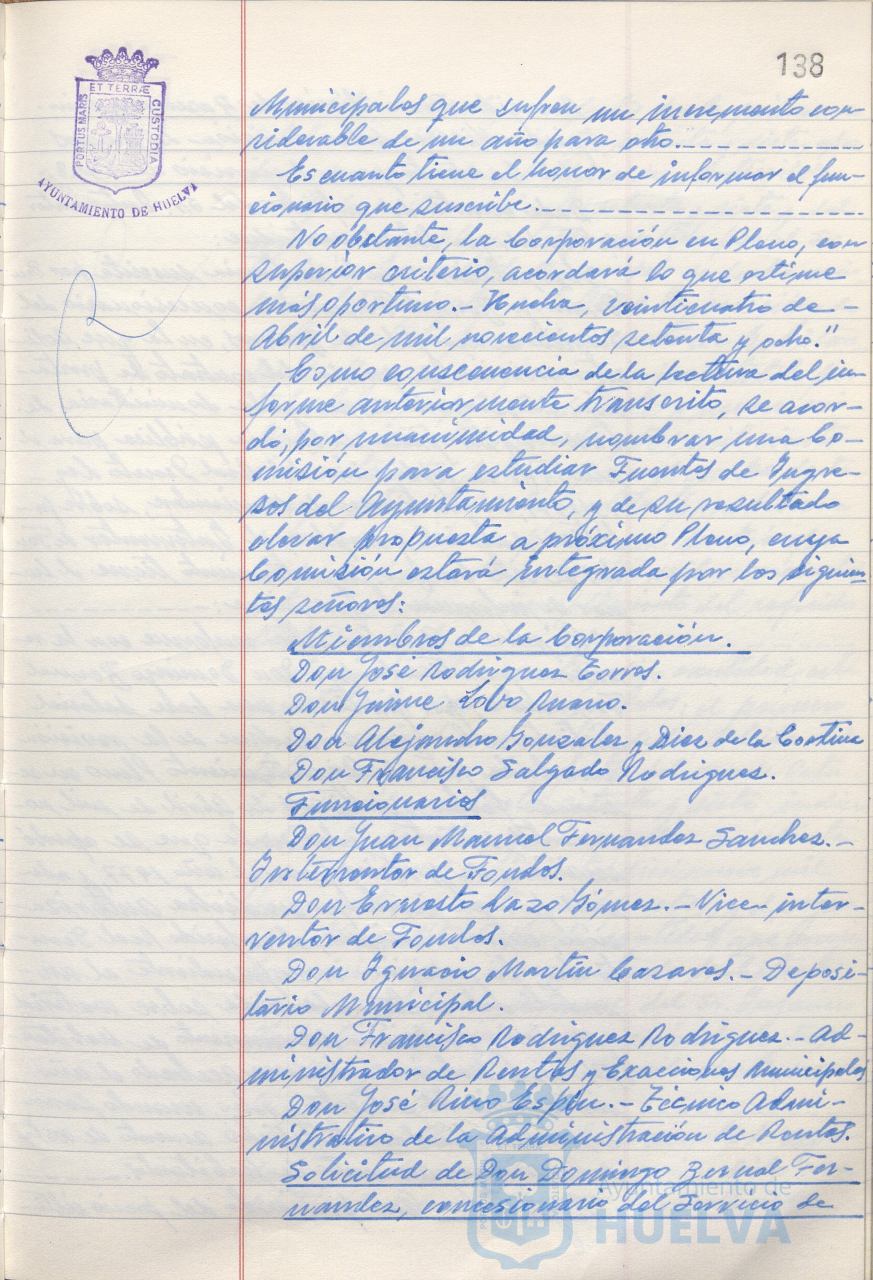 138
ET TERRÆ
PORTUS MARIS
CUSTODIA
AYUNTAMIENTO DE HUELVA
Municipales que sufren un incremento con-
siderable de un año para otro.
Es cuanto tiene el honor de informar el fun-
cionario que suscribe.
No obstante, la Corporación en Pleno, con
superior criterio, acordará lo que estime
más oportuno.- Huelva, veinticuatro de
Abril de mil novecientos setenta y ocho."
Como consecuencia de la lectura del in-
forme anteriormente transcrito, se acor-
dó, por unanimidad, nombrar una Co-
misión para estudiar Fuentes de Ingre-
sos del Ayuntamiento, y de su resultado
elevar propuesta a próximo Pleno, cuya
Comisión estará integrada por los siguien-
tes señores:
Miembros de la Corporación.
Don José Rodríguez Torres.
Don Jaime Lobo Ruano.
Don Alejandro Gonzalez y Diez de la Cortina
Don Francisco Salgado Rodriguez.
Funcionarios
Don Juan Manuel Fernandez Sanchez.-
Interventor de Fondos.
Don Ernesto Lazo Gómez.- Vice-inter-
ventor de Fondos.
Don Ignacio Martín Cazares.- Deposi-
tario Municipal.
Don Francisco Rodriguez Rodriguez.- Ad-
ministrador de Rentas y Exacciones Municipales
Don José Rino Espín.- Técnico Admi-
nistrativo de la Administración de Rentas.
Solicitud de Don Domingo Bernal Fer-
nandez, concesionario del Servicio de
Ayuntamiento de
HUELVA